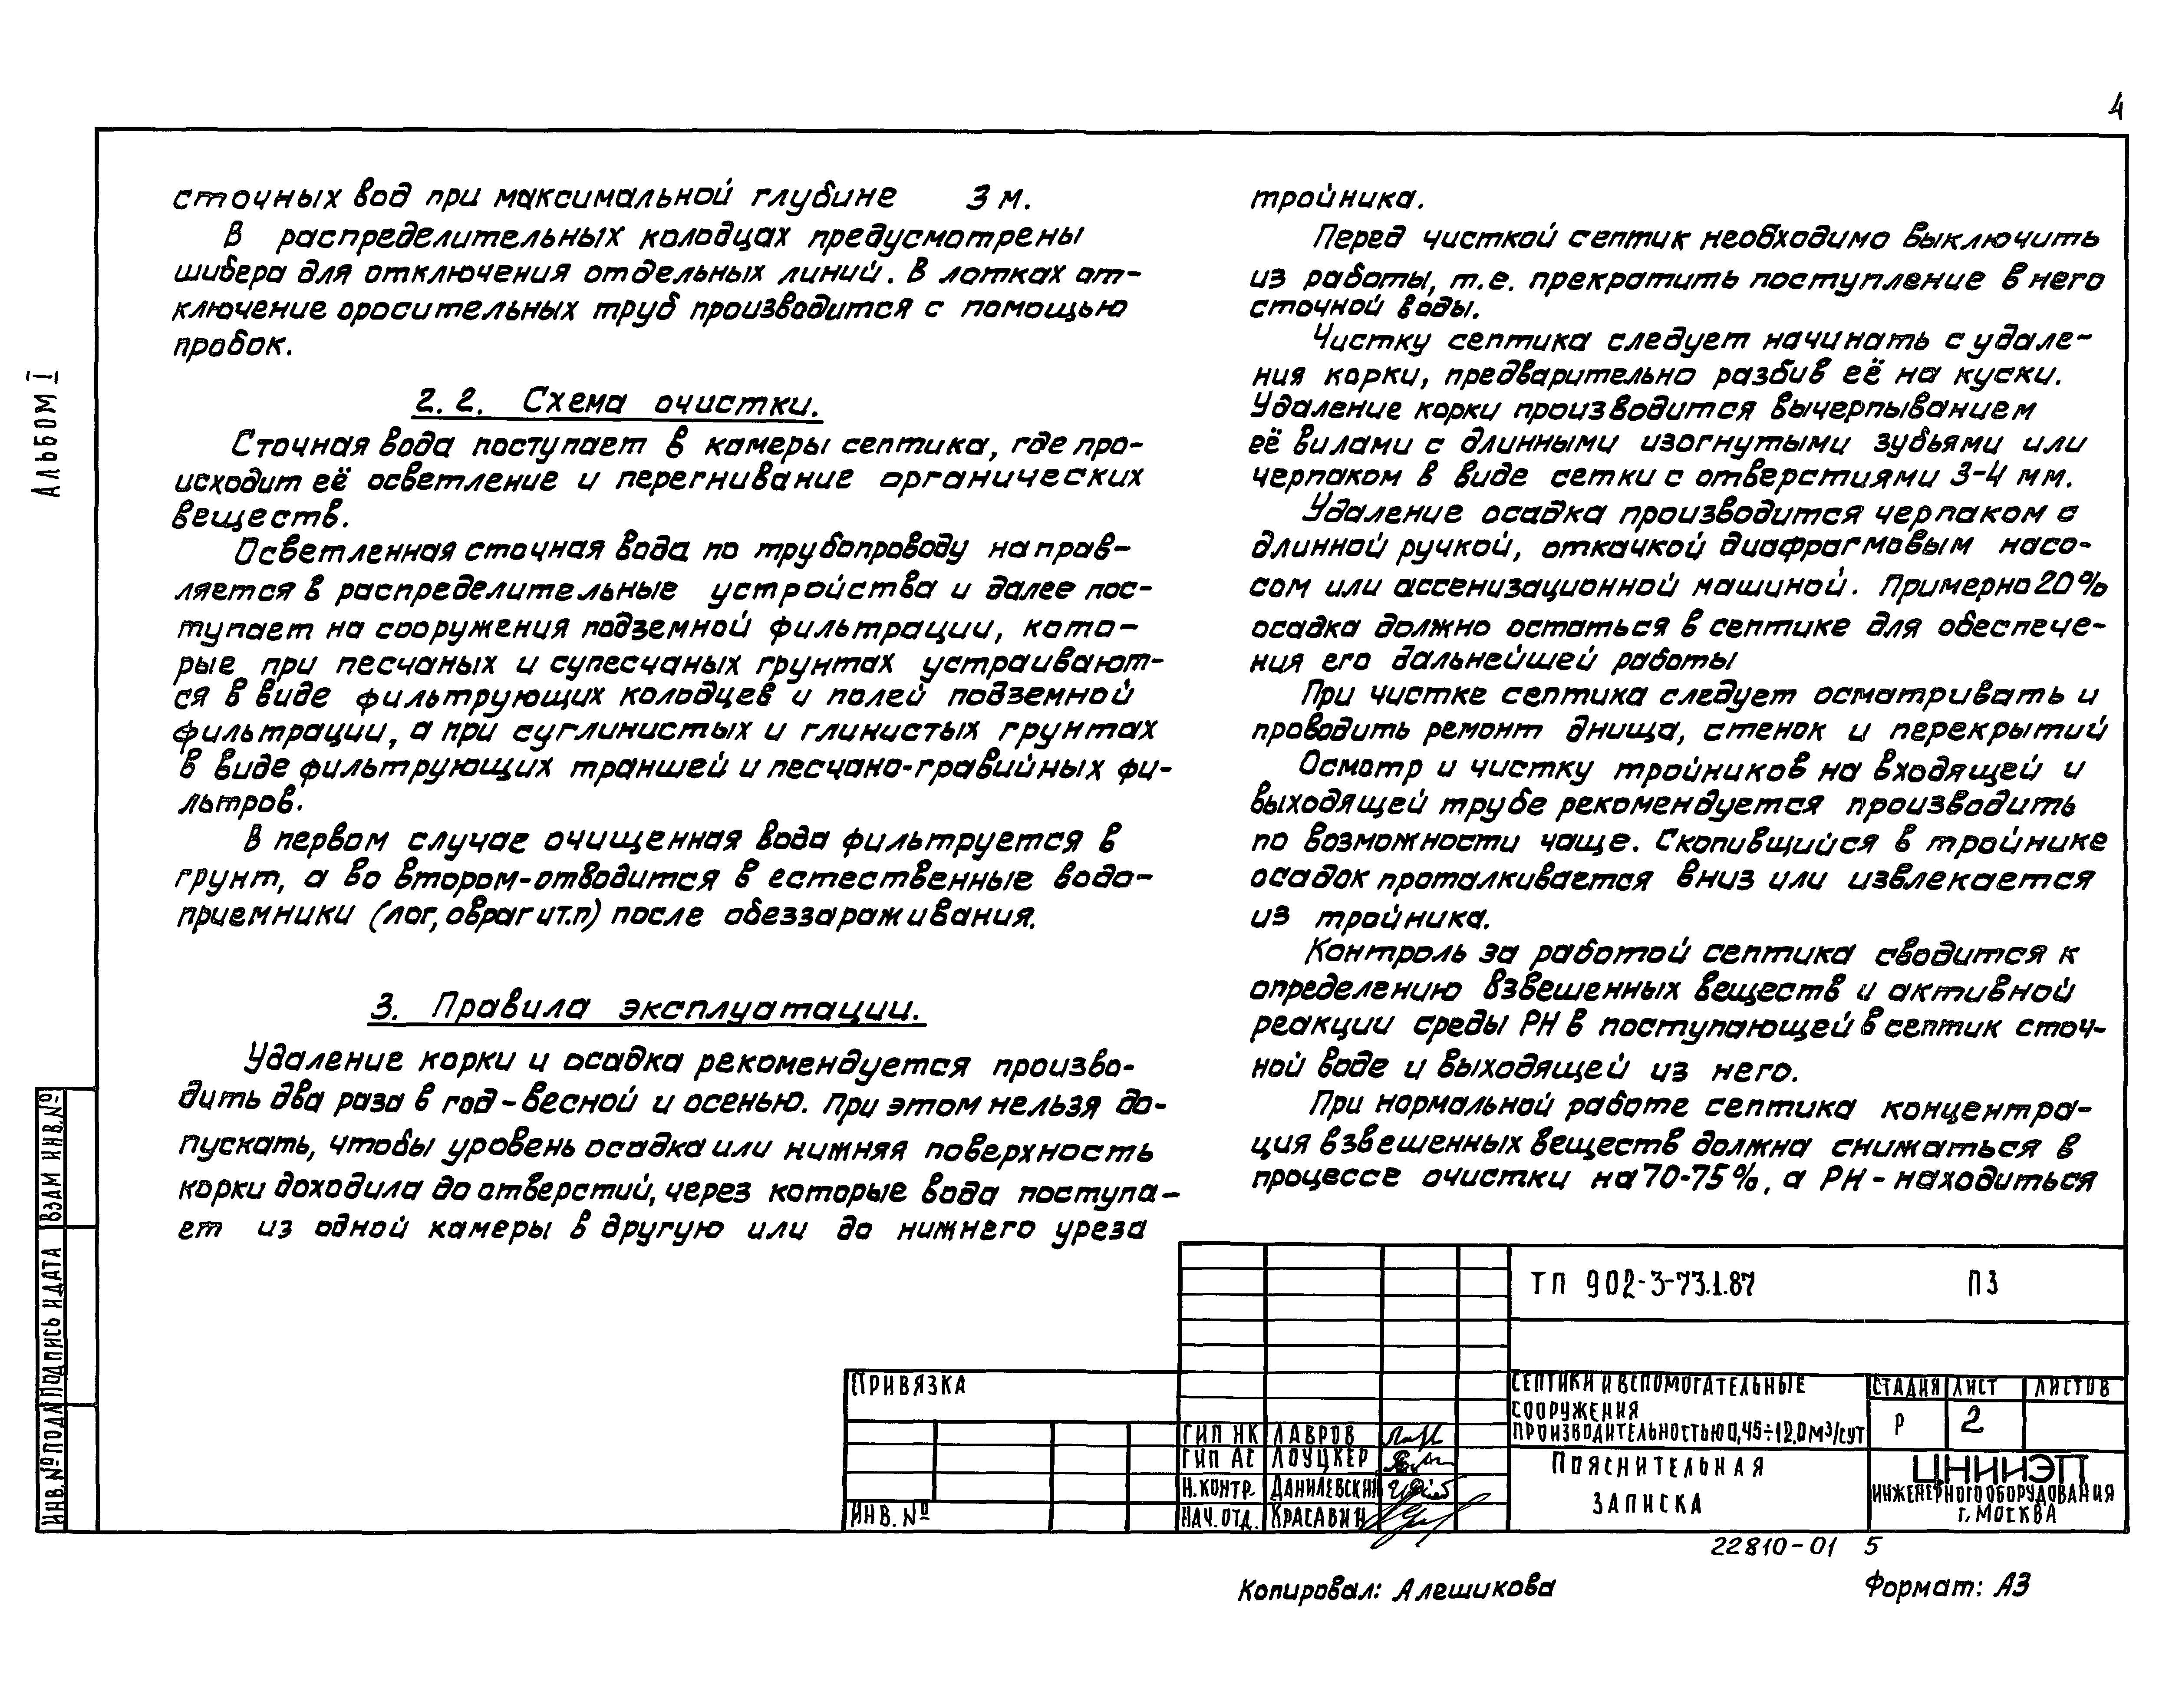 4
АЛЬБОМ I
сточных вод при максимальной глубине 3 м.
В распределительных колодцах предусмотрены
шибера для отключения отдельных линий. В лотках от-
ключение оросительных труб производится с помощью
пробок.
2.2. Схема очистки.
Сточная вода поступает в камеры септика, где про-
исходит её осветление и перегнивание органических
веществ.
Осветленная сточная вода по трубопроводу направ-
ляется в распределительные устройства и далее пос-
тупает на сооружения подземной фильтрации, кото-
рые при песчаных и супесчаных грунтах устраивают-
ся в виде фильтрующих колодцев и полей подземной
фильтрации, а при суглинистых и глинистых грунтах
в виде фильтрующих траншей и песчано-гравийных фи-
льтров.
В первом случае очищенная вода фильтруется в
грунт, а во втором-отводится в естественные водо-
приемники (лог, овраг и т.п) после обеззараживания.
3. Правила эксплуатации.
Удаление корки и осадка рекомендуется произво-
дить два раза в год - весной и осенью. При этом нельзя до-
пускать, чтобы уровень осадка или нижняя поверхность
корки доходила до отверстий, через которые вода поступа-
ет из одной камеры в другую или до нижнего уреза
тройника.
Перед чисткой септик необходимо выключить
из работы, т.е. прекратить поступление в него
сточной воды.
Чистку септика следует начинать с удале-
ния корки, предварительно разбив её на куски.
Удаление корки производится вычерпыванием
её вилами с длинными изогнутыми зубьями или
черпаком в виде сетки с отверстиями 3-4 мм.
Удаление осадка производится черпаком с
длинной ручкой, откачкой диафрагмовым насо-
сом или ассенизационной машиной. Примерно 20%
осадка должно остаться в септике для обеспече-
ния его дальнейшей работы
При чистке септика следует осматривать и
проводить ремонт днища, стенок и перекрытий
Осмотр и чистку тройников на входящей и
выходящей трубе рекомендуется производить
по возможности чаще. Скопившийся в тройнике
осадок проталкивается вниз или извлекается
из тройника.
Контроль за работой септика сводится к
определению взвешенных веществ и активной
реакции среды РН в поступающей в септик сточ-
ной воде и выходящей из него.
При нормальной работе септика концентра-
ция взвешенных веществ должна снижаться в
процессе очистки на 70-75%, а РН - находиться
ВЗАМ ИНВ.№
ПОДПИСЬ И ДАТА
ИНВ.№ ПОДЛ
ПРИВЯЗКА
ИНВ. №
ГИП НК ЛАВРОВ
ГИП АС ЛОУЦКЕР
Н.КОНТР. ДАНИЛЕВСКИЙ
НАЧ.ОТД. КРАСАВИН
ТП 902-3-73.1.87 ПЗ
СЕПТИКИ И ВСПОМОГАТЕЛЬНЫЕ
СООРУЖЕНИЯ
ПРОИЗВОДИТЕЛЬНОСТЬЮ 0,45÷12,0 м³/сут
СТАДИЯ ЛИСТ ЛИСТОВ
Р 2
ПОЯСНИТЕЛЬНАЯ
ЗАПИСКА
ЦНИИЭП
ИНЖЕНЕРНОГО ОБОРУДОВАНИЯ
г. МОСКВА
22810-01 5
Копировал: Алешикова
Формат: А3